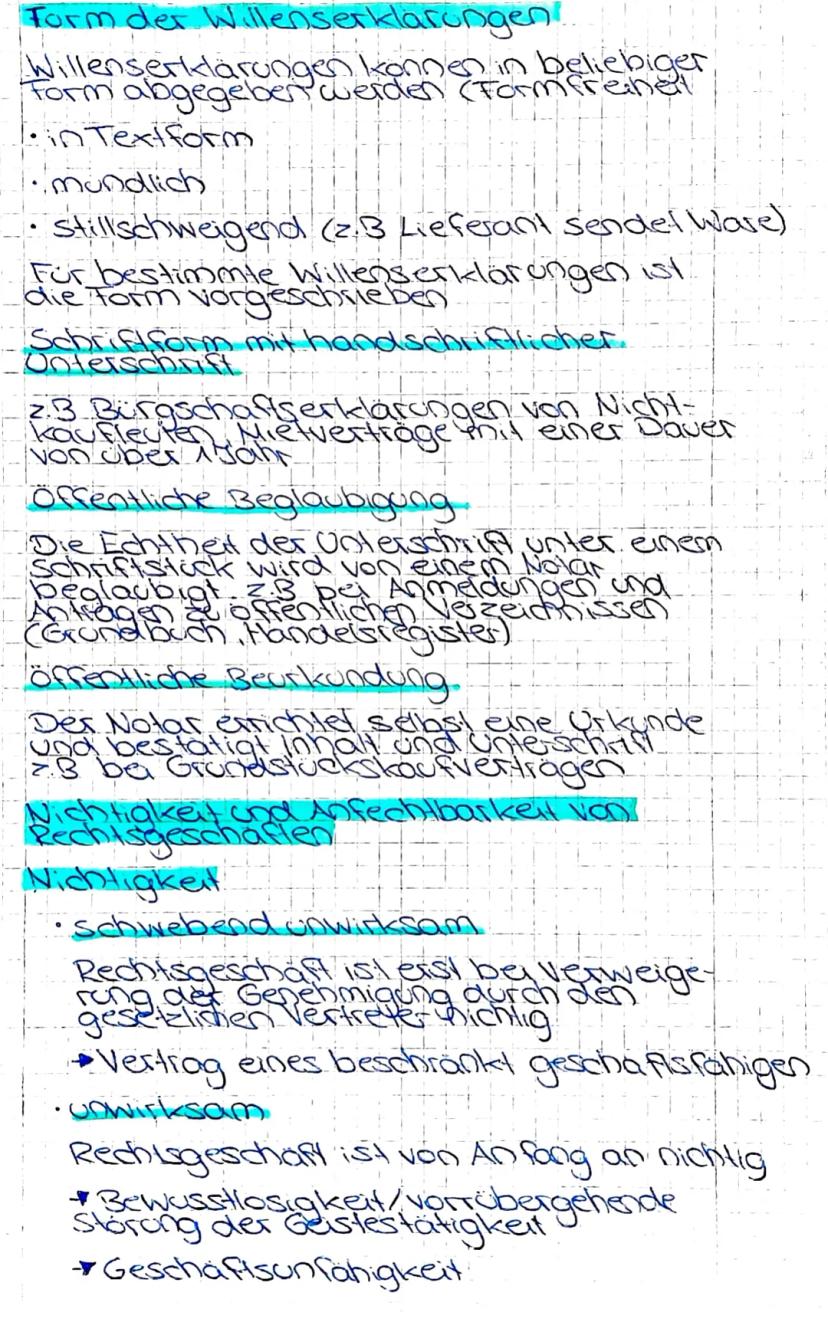 Form der Willenserklärungen
Willenserklärungen können in beliebiger
Form abgegeben werden (Formfreiheit
· in Textform
· mündlich
· stillschweigend (z.B Lieferant sendet Ware)
Für bestimmte Willenserklärungen ist
die Form vorgeschrieben
Schriftform mit handschriftlicher
Unterschrift
z.B Bürgschaftserklärungen von Nicht-
kaufleuten, Mietverträge mit einer Dauer
von über 1 Jahr
Öffentliche Beglaubigung
Die Echtheit der Unterschrift unter einem
Schriftstück wird von einem Notar
beglaubigt. z.B bei Anmeldungen und
Anträgen zu öffentlichen Verzeichnissen
(Grundbuch, Handelsregister)
öffentliche Beurkundung
Der Notar errichtet selbst eine Urkunde
und bestätigt Inhalt und Unterschrift
z.B bei Grundstückskaufverträgen
Nichtigkeit und Anfechtbarkeit von
Rechtsgeschäften
Nichtigkeit
· schwebend unwirksam
Rechtsgeschäft ist erst bei Verweige-
rung der Genehmigung durch den
gesetzlichen Vertreter nichtig
→ Vertrag eines beschränkt geschäftsfähigen
· unwirksam
Rechtsgeschäft ist von Anfang an nichtig
→ Bewusstlosigkeit/vorrübergehende
Störung der Geistestätigkeit
→ Geschäftsunfähigkeit